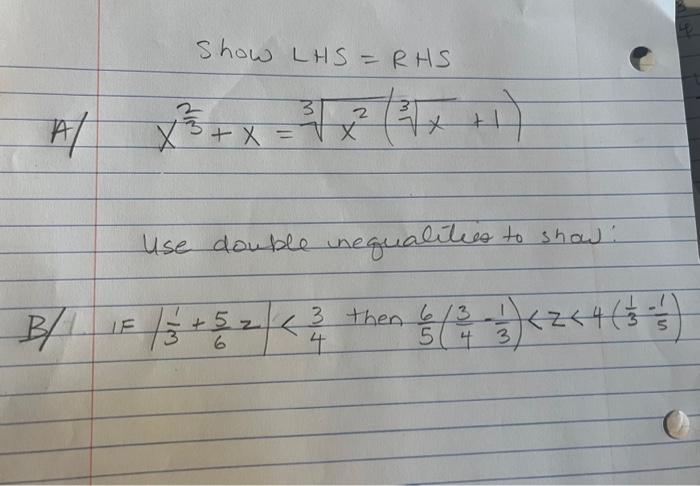 Show LHS = RHS
A/ x^(2/3) + x = ∛x² (∛x + 1)
Use double inequalities to show:
B/ IF |1/3 + 5/6 z| < 3/4 then 6/5 (3/4 - 1/3) < z < 4 (1/3 - 1/5)